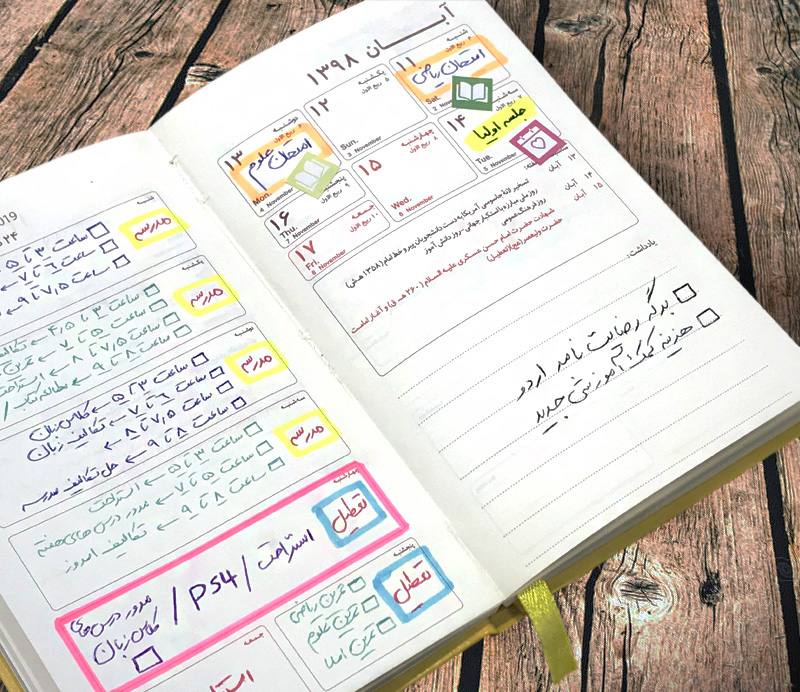 آبـــان ۱۳۹۸
شنبه
۱۱
۴ ربیع الاول
امتحان ریاضی
Sat.
یکشنبه
۱۲
۵ ربیع الاول
Sun.
3 November
دوشنبه
۱۳
۶ ربیع الاول
امتحان علوم
Mon.
4 November
سه‌شنبه
۱۴
۷ ربیع الاول
جلسه اولیا
Tue.
5 November
چهارشنبه
۱۵
۸ ربیع الاول
Wed.
6 November
پنجشنبه
۱۶
۹ ربیع الاول
Thu.
7 November
جمعه
۱۷
۱۰ ربیع الاول
Fri.
8 November
۱۳ آبان
تسخیر لانه جاسوسی آمریکا به دست دانشجویان پیرو خط امام (۱۳۵۸ ه‍.ش)
روز ملی مبارزه با استکبار جهانی - روز دانش آموز
۱۴ آبان
روز فرهنگ عمومی
۱۵ آبان
شهادت حضرت امام حسن عسکری علیه السلام (۲۶۰ ه‍.ق) و آغاز امامت
حضرت ولیعصر (عج) (تعطیل)
یادداشت:
برگه رضایت نامه اردو
هزینه کمک آموزشی جدید
شنبه
مدرسه
ساعت ۳ تا ۵
ساعت ۶ تا ۷
ساعت ۷,۵ تا ۹
یکشنبه
مدرسه
ساعت ۳ تا ۴,۵ ← تکالیف
ساعت ۵ تا ۷ ← تمرین
ساعت ۷,۵ تا ۸ ← استراحت
ساعت ۸ تا ۹ ← مطالعه کتاب /
دوشنبه
مدرسه
ساعت ۳ تا ۵ ← کلاس زبان
ساعت ۶ تا ۷ ← تکالیف زبان
ساعت ۷,۵ تا ۸ ←
ساعت ۸ تا ۹ ← حل تکالیف مدرسه
سه‌شنبه
مدرسه
ساعت ۳ تا ۵ ← استراحت
ساعت ۵ تا ۷ ← مرور درس های هفته
ساعت ۸ تا ۹ ← تکالیف امروز
چهارشنبه
تعطیل
استراحت / PS4 / مرور درس های
کلاس زبان
پنجشنبه
تعطیل
تمرین ریاضی
تمرین علوم
تمرین املا
جمعه